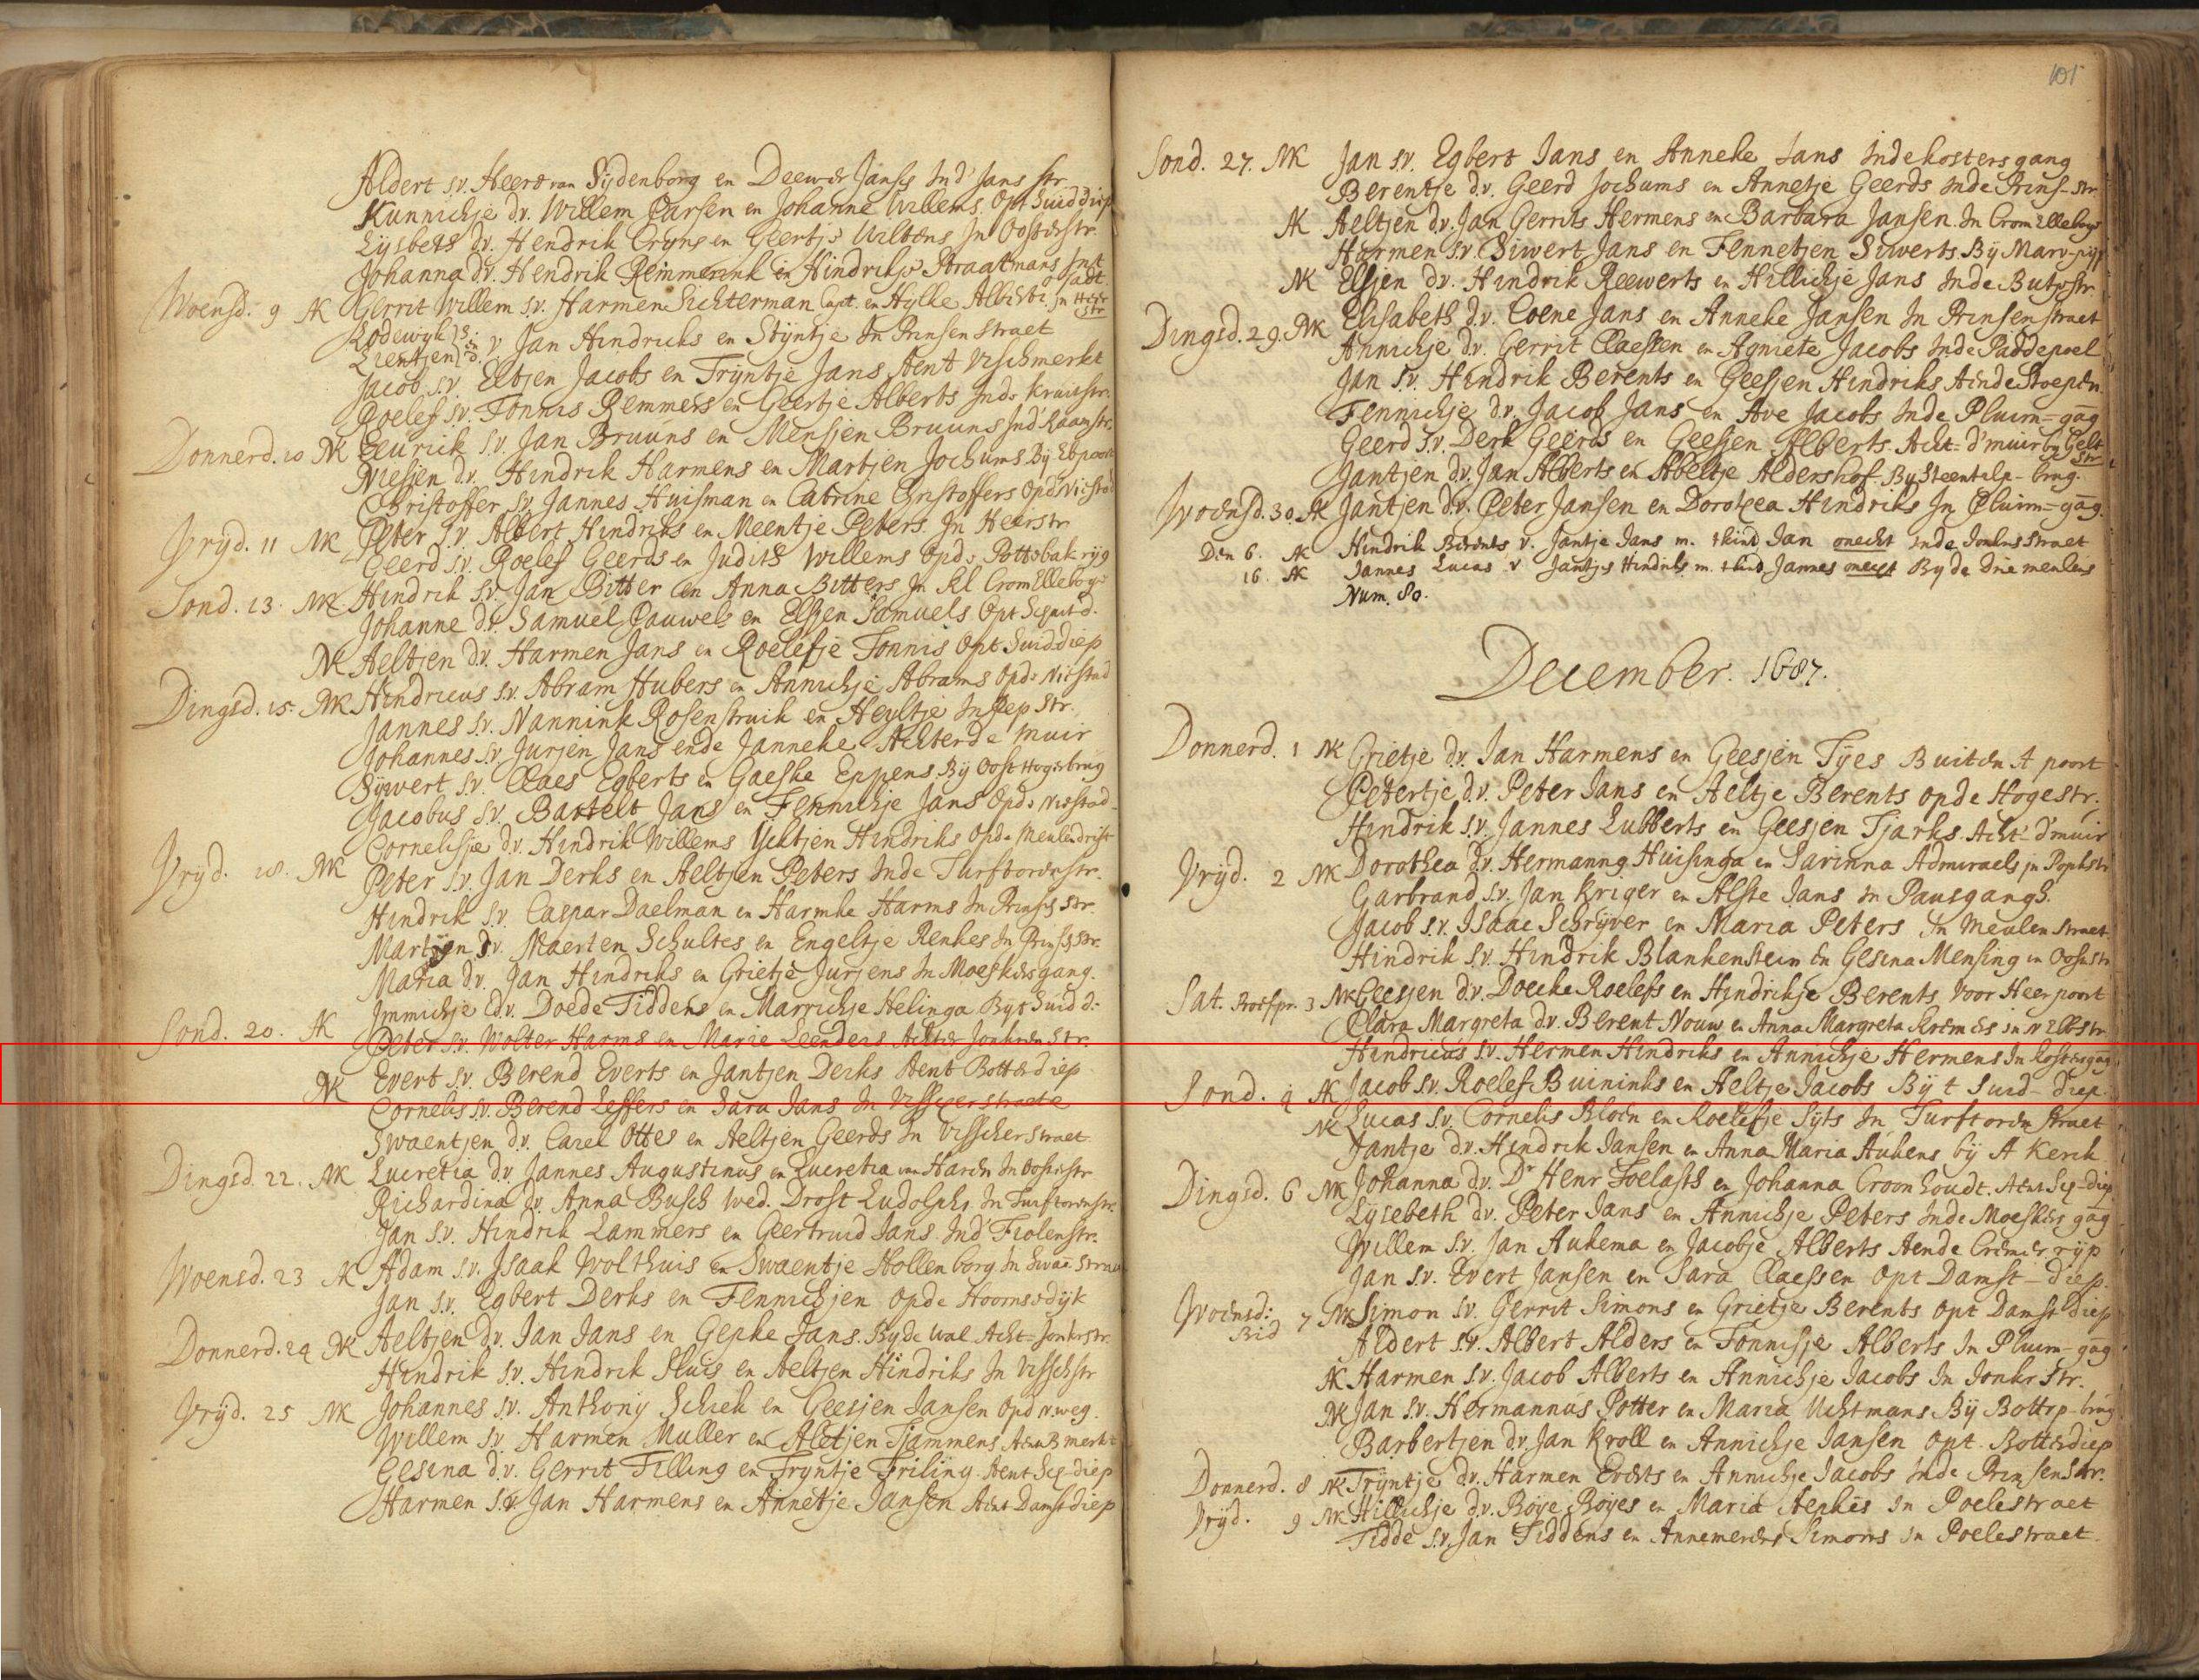 Aldert s.v. Heere van Sijdenborg en Deewer Jansen Ind' Jans str
Kunnichje dv. Willem Carsen en Johanne Willems. Opt Suid diep
Lijsbeth dv. Hendrik Cryns en Geertje Uiltiens In Oosterstr.
Johanna dv. Hendrik Remmerink en Hindrikje Straatmans Int
Jadt.
Woensd. 9 AK Gerrit Willem s.v. Harmen Sichterman Capt. en Hylke Alberti. In Heer
str
Lodewyk } s. en
Lientjen } d. v Jan Hindricks en Stijntje In Prinsen straet
Jacob s.v. Eltjen Jacobs en Trijntje Jans Aent Vischmerkt
Roelef s.v. Tonnis Remmers en Geertje Alberts Inde Kruisstr.
Donnerd. 10 NK Leurick s.v. Jan Bruuns en Mensjen Bruuns Ind' Raamstr.
Niesjen dv. Hindrik Harmens en Martjen Jochums Bij Ebpoort
Christoffer s.v. Jannes Huisman en Catrine Christoffers Opde Niestad
Vryd. 11 NK Peter s.v. Albert Hindriks en Meentje Peters In Heerstr
Geerd s.v. Roelef Geerds en Judith Willems Opde Pottebak ryg
Sond. 13. NK Hindrik s.v. Jan Bitter en Anna Bitters In kl Crom Elleboge
Johanne dv. Samuel Pauwels en Elsjen Samuels Opt Scuit d.
NK Aeltjen dv. Harmen Jans en Roelefje Tonnis Opt Suiddiep
Dingsd. 15. NK Hindricus s.v. Abram Hubers en Annichje Abrams Opde Niestad
Jannes s.v. Nannink Rosenstruik en Heyltje In Pep Str.
Johannes s.v. Jurjen Jans ende Janneke Achterde muir
Sijwert s.v. Claes Egberts en Gaeske Eppens Bij Oosthogebrug
Jacobus s.v. Bartelt Jans en Fennichje Jans Opde Niestad
Cornelisje dv. Hindrik Willems Ychtjen Hindriks Opde Meulendrift
Vryd. 18. NK Peter s.v. Jan Derks en Aeltjen Peters Inde Turftorenstr.
Hindrik s.v. Caspar Daelman en Harmke Harms In Prinse Str.
Martjen dv. Maerten Schultes en Engeltje Renkes In Prinsestr.
Maria dv. Jan Hindriks en Grietje Jurjens In Moeskersgang.
Immichje dv. Doede Tiddens en Marrichje Helinga Byt Suid d.
Sond. 20. AK Peter s.v. Wolter Harms en Marie Leenders Achter Jonkeren Str.
NK Evert s.v. Berend Everts en Jantjen Derks Aent Botterdiep
Cornelis s.v. Berend Leffers en Sara Jans In Visscherstraete
Swaentjen dv. Carel Ottes en Aeltjen Geerds In Visscherstraet
Dingsd. 22. NK Lucretia dv. Jannes Augustinus en Lucretia van Haren In Oosterstr
Richardina dv. Anna Busch wed. Drost Ludolphi In Turftorenstr.
Jan s.v. Hindrik Lammers en Geertruid Jans Ind' Fiolenstr.
Woensd. 23 AK Adam s.v. Isaak Wolthuis en Swaentje Hollenborg In Swane straet
Jan s.v. Egbert Derks en Fennichjen Opde Hoornsedijk
Donnerd. 24 NK Aeltjen dv. Jan Jans en Gepke Jans. Byde Wal Acht=Jonkerstr.
Hindrik s.v. Hindrik Sluis en Aeltjen Hindriks In Vischstr
Vryd. 25 NK Johannes s.v. Anthony Schek en Geesjen Jansen Opd n. weg.
Willem s.v. Harmen Muller en Aletjen Tjammens Aent B merkt
Gesina d.v. Gerrit Filling en Tryntje Friling Aent Scp-diep
Harmen s.v. Jan Harmens en Annetje Jansen Aent Damsterdiep
101
Sond. 27. NK Jan s.v. Egbert Jans en Anneke Jans Inde kosters gang
Berentje d.v. Geerd Jochums en Annetje Geerds Inde Prins-str
AK Aeltjen d.v. Jan Gerrits Hermens en Barbara Jansen. In Crom Elleboge
Harmen s.v. Siwert Jans en Fennetjen Siwerts. Bij Marv-pijp
NK Elsjen dv. Hindrik Reewerts en Hillichje Jans Inde Butjestr.
Dingsd. 29. NK Elisabeth d.v. Coene Jans en Anneke Jansen In Prinsenstraet
Annichje d.v. Gerrit Claessen en Agniete Jacobs Inde Paddepoel
Jan s.v. Hindrik Berents en Geesjen Hindriks Ainde Stoepen
Fennichje d.v. Jacob Jans en Ave Jacobs Inde Pluim=gag
Geerd s.v. Derk Geerds en Geesjen Alberts. Acht=d'muir by Gelk
str
Jantjen d.v. Jan Alberts en Abeltje Aldershof By Steentilp-brug.
Woensd. 30 AK Jantjen d.v. Peter Jansen en Dorothea Hindriks In Pluim=gag.
Den 6. AK Hindrik Berents v. Jantje Jans m. t kind Jan onecht Inde Jonker Straet
16. AK Jannes Lucas v Jantje Hindriks m. t kind Jannes onecht By de drie meulens
Num. 80.
December. 1687.
Donnerd. 1 NK Grietje dv. Jan Harmens en Geesjen Tijes Buiten A poort
Petertje d.v. Peter Jans en Aeltje Berents opde Hogestr.
Hindrik s.v. Jannes Lubberts en Geesjen Tjarks. Acht' d'muir
Vryd. 2 NK Dorothea dv. Hermanng Huisinga en Sarinna Admiraels In Popkestr
Garbrand s.v. Jan Kriger en Alste Jans In Pausgangh.
Jacob s.v. Isaac Schrijver en Maria Peters In Meulen Straet.
Hindrik s.v. Hindrik Blankenstein en Gesina Mensing in Oosterstr
Sat. Proefpr. 3 NK Geesjen d.v. Doecke Roelefs en Hindrikje Berents Voor Heerpoort
Clara Margreta d.v. Berent Nouw en Anna Margreta Kremers In N Ebbstr
Hindricus s.v. Hermen Hindriks en Annichje Hermens In Kostersgag
Sond. 4 AK Jacob s.v. Roelef Buininks en Aeltje Jacobs Bij t Suid-diep.
NK Lucas s.v. Cornelis Bloen en Roelefje Sijts In Turftoren Straet
Jantje d.v. Hindrik Jansen en Anna Maria Aukens bij A Kerck
Dingsd. 6 NK Johanna d.v. Dr Henr Toelasth en Johanna Croonhoudt. Aent Scp-diep
Lijsebeth dv. Peter Jans en Annichje Peters Inde Moeskers gag
Willem s.v. Jan Aukema en Jacobje Alberts Aende Cremer rijp
Jan s.v. Evert Jansen en Sara Claessen Opt Damst-diep.
Woensd: 7 NK Simon s.v. Gerrit Simons en Grietje Berents Opt Damst diep
Bid
Aldert s.v. Albert Alders en Tonnisje Alberts In Pluim-gag
AK Harmen s.v. Jacob Alberts en Annichje Jacobs In Jonkr Str.
NK Jan s.v. Hermannus Potter en Maria Uchtmans Bij Bottrp-brug
Barbertjen dv. Jan Kroll en Annichje Jansen Opt. Botterdiep
Donnerd. 8 NK Trijntje dv. Harmen Everts en Annichje Jacobs Inde Prinsen str.
Vryd. 9 NK Hillichje d.v. Boye Boyes en Maria Aepkes In Poelestraet
Tidde s.v. Jan Tiddens en Annemerike Simons In Poelestraet.